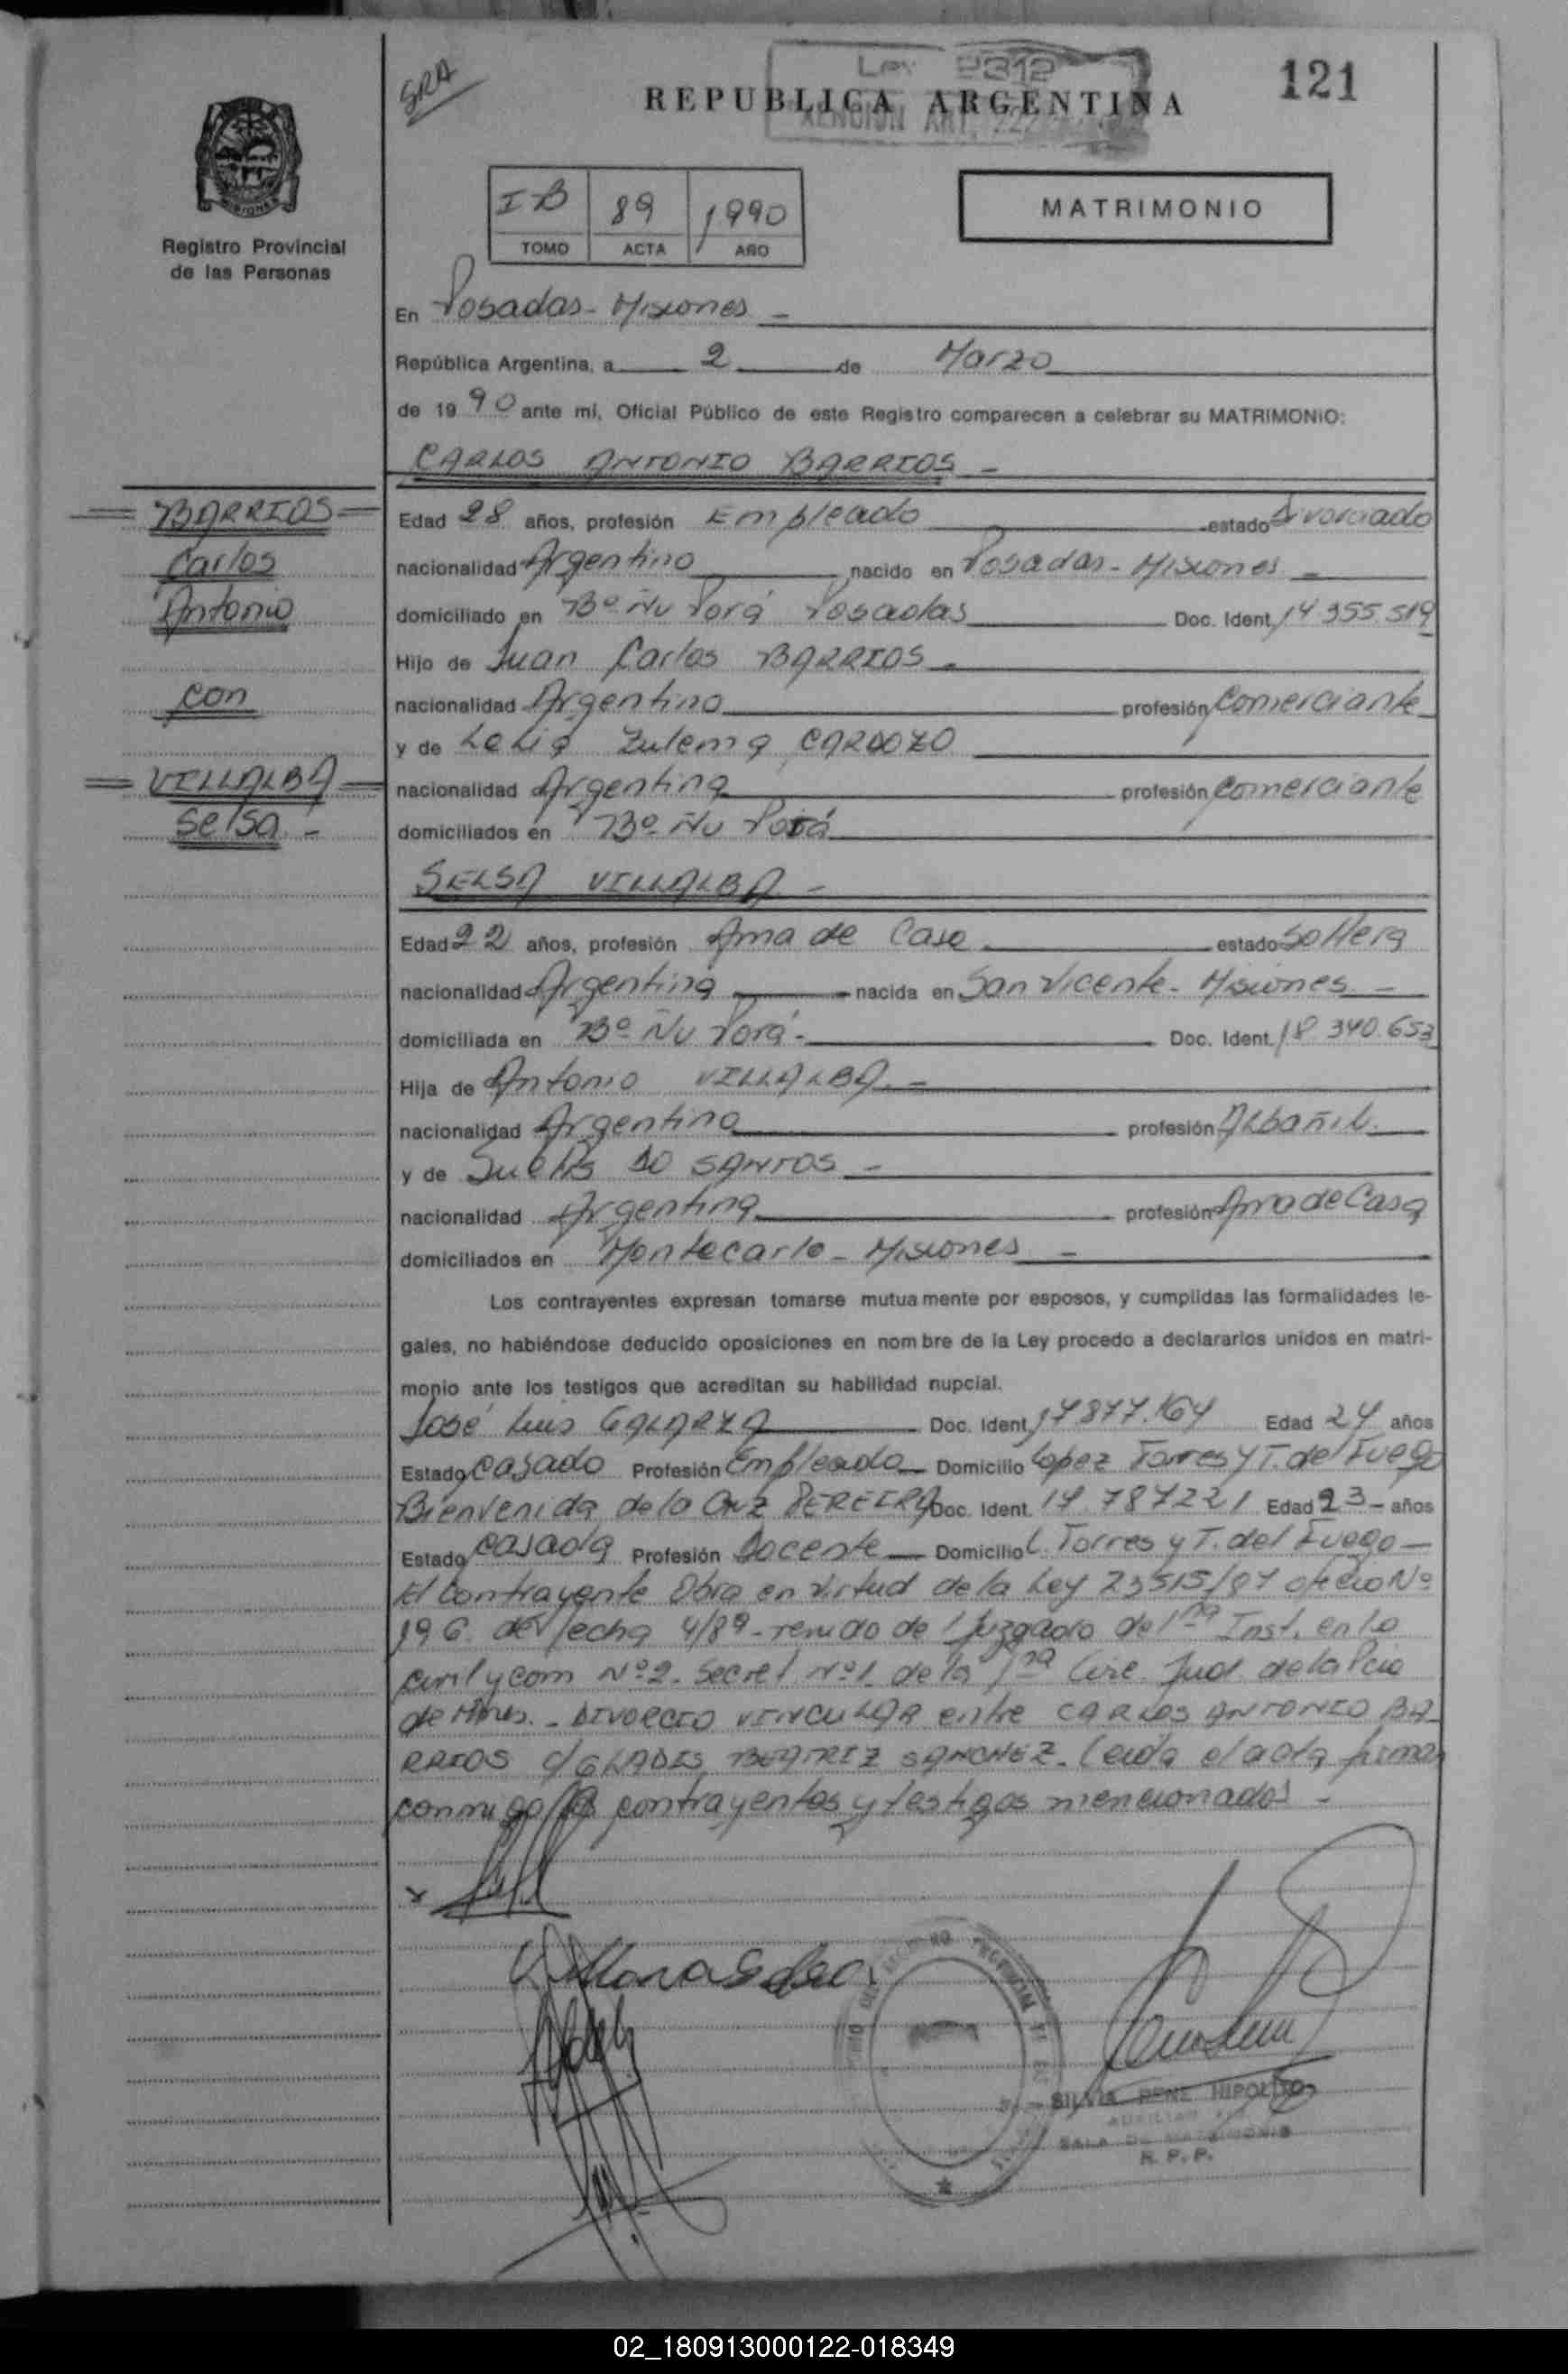 SRA
Ley 2312
REPUBLICA ARGENTINA
121
I B 89 1990
TOMO ACTA AÑO
MATRIMONIO
MISIONES
Registro Provincial
de las Personas
En Posadas - Misiones -
República Argentina, a 2 de Marzo
de 1990 ante mí, Oficial Público de este Registro comparecen a celebrar su MATRIMONIO:
CARLOS ANTONIO BARRIOS -
= BARRIOS =
Carlos
Antonio
con
= VILLALBA =
Selsa -
Edad 28 años, profesión Empleado estado Divorciado
nacionalidad Argentino nacido en Posadas - Misiones -
domiciliado en Bº Ñu Porá Posadas Doc. Ident. 14 355.519
Hijo de Juan Carlos BARRIOS -
nacionalidad Argentino profesión Comerciante
y de Zulema CARDOZO
nacionalidad Argentina profesión Comerciante
domiciliados en Bº Ñu Porá
SELSA VILLALBA -
Edad 22 años, profesión Ama de Casa estado Soltera
nacionalidad Argentina nacida en San Vicente - Misiones -
domiciliada en Bº Ñu Porá - Doc. Ident. 18 340.653
Hija de Antonio VILLALBA. -
nacionalidad Argentino profesión Albañil.
y de DO SANTOS -
nacionalidad Argentina profesión Ama de Casa
domiciliados en Montecarlo - Misiones -
Los contrayentes expresan tomarse mutuamente por esposos, y cumplidas las formalidades le-
gales, no habiéndose deducido oposiciones en nombre de la Ley procedo a declararlos unidos en matri-
monio ante los testigos que acreditan su habilidad nupcial.
José Luis GALARZA Doc. Ident. 17 877.164 Edad 24 años
Estado Casado Profesión Empleado Domicilio Lopez Torres y T. del Fuego
Bienvenida de la Cruz PEREIRA Doc. Ident. 17 787221 Edad 23 - años
Estado Casada Profesión Docente Domicilio L. Torres y T. del Fuego -
El contrayente Obra en virtud de la Ley 23515/87 oficio Nº
196 de fecha 4/89 - del Juzgado de 1ra Inst. en lo
civil y com Nº 2. Secret Nº 1. de la 1ra Circ. Jud. de la Pcia
de Mnes. - DIVORCIO VINCULAR entre CARLOS ANTONIO BA-
RRIOS c/ GLADIS BEATRIZ SANCHEZ. Leida el acta, firman
conmigo los contrayentes y testigos mencionados -
Villalba Selsa
SILVIA RENE HIPOLITO
AUXILIAR
SALA DE MATRIMONIO
R. P. P.
02_180913000122-018349